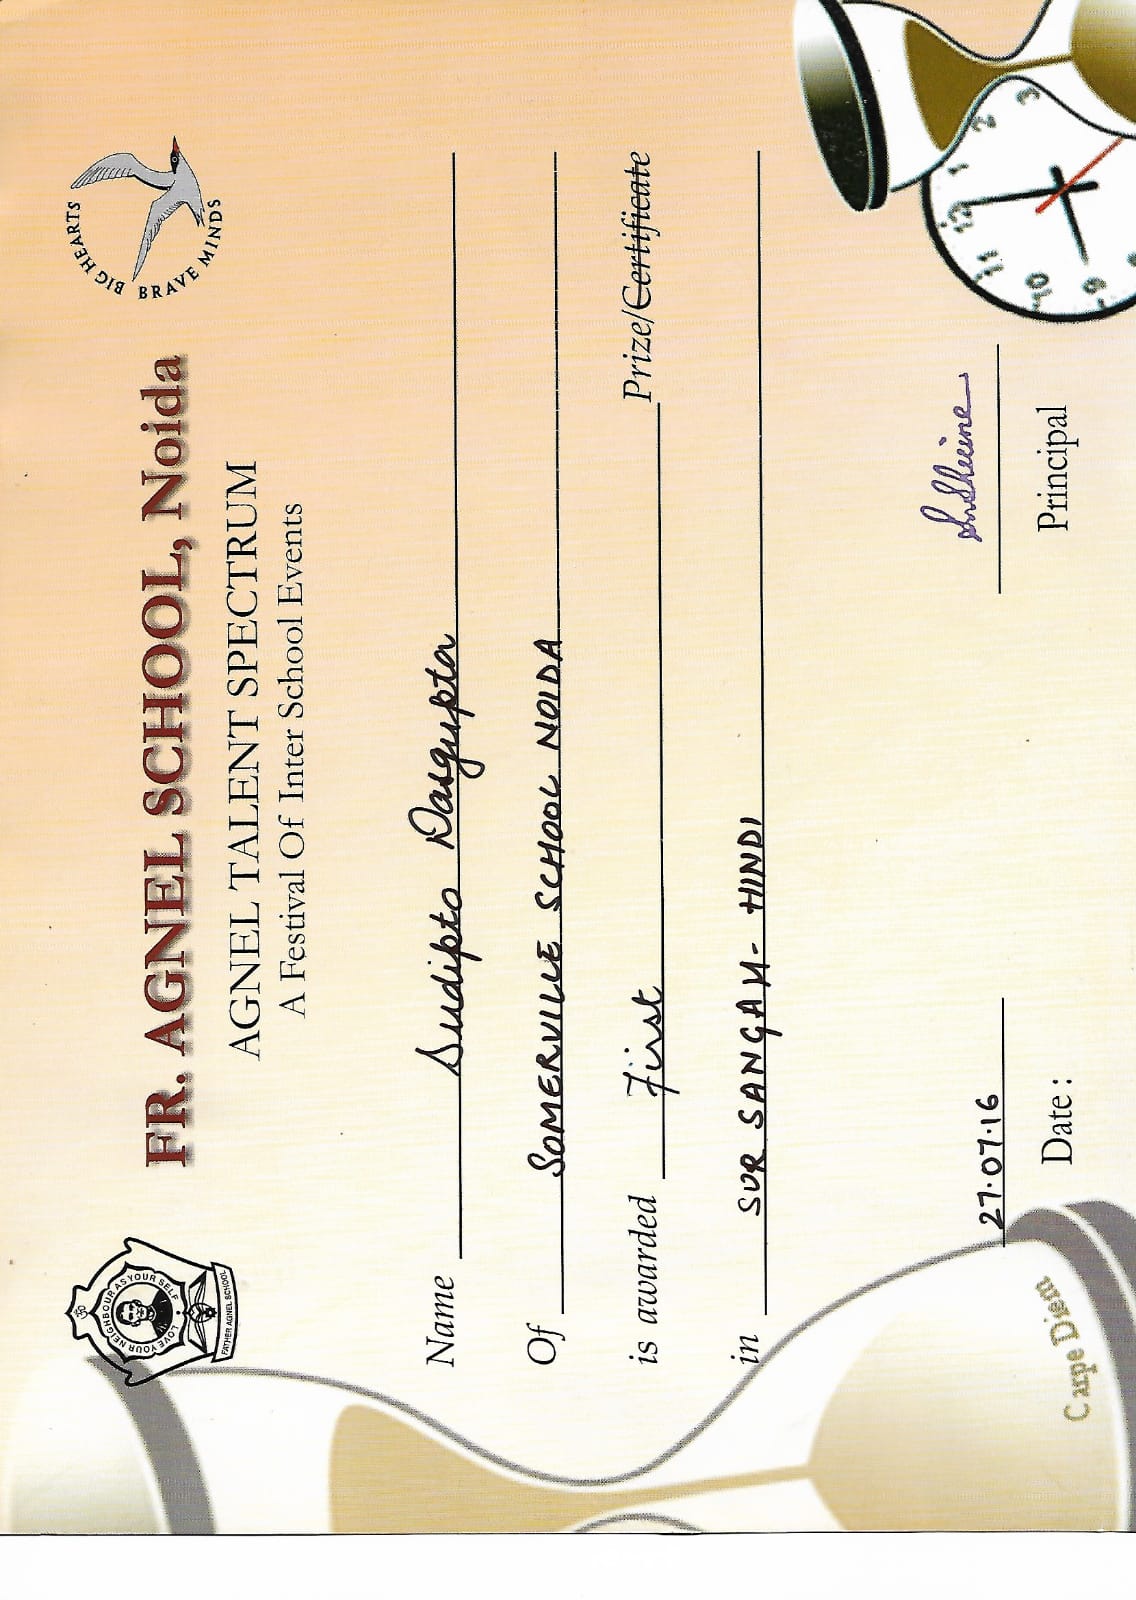 LOVE YOUR NEIGHBOUR AS YOUR SELF
FATHER AGNEL SCHOOL
BIG HEARTS
BRAVE MINDS
FR. AGNEL SCHOOL, Noida
AGNEL TALENT SPECTRUM
A Festival Of Inter School Events
Name Sudipto Dasgupta
Of SOMERVILLE SCHOOL NOIDA
is awarded First Prize/Certificate
in SUR SANGAM- HINDI
27.07.16
Date :
Principal
Carpe Diem
12
1
2
3
9
10
11